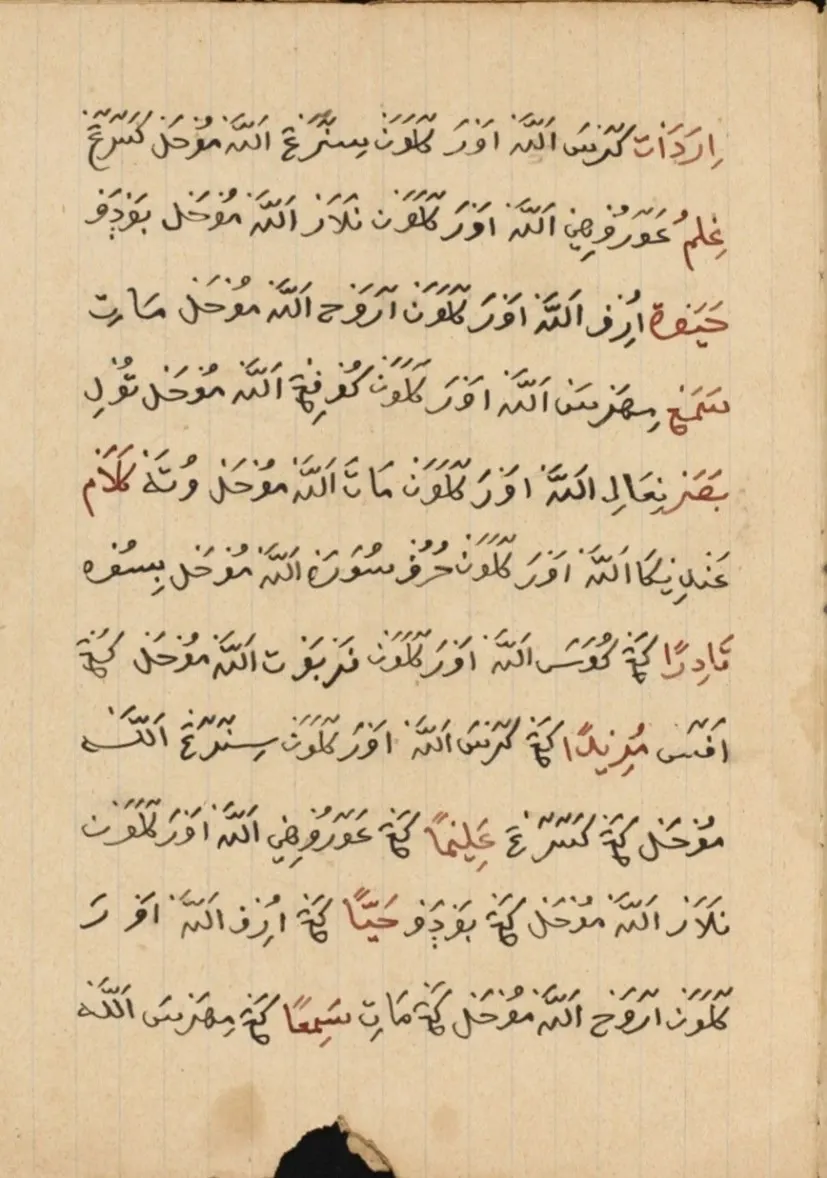 اِرَدَات كَرْسَ اَللَّه اَوْرَ كَلَوَن سِنْتَرَغ اَللَّه مُوْحَل كَسْتَرَغ
عِلمُ عَوْرُوْهِي اَللَّه اَوْرَ كَلَوَن نَلَار اَللَّه مُوْحَل بَوْدَو
حَيَوة اُرِف اَللَّه اَوْرَ كَلَوَن اَرْوَح اَللَّه مُوْحَل مَاتِ
سَمَع مِهَرْسَ اَللَّه اَوْرَ كَلَوَن كُوْفِڠ اَللَّه مُوْحَل تُوْلِ
بَصَر نِعَالِ اَللَّه اَوْرَ كَلَوَن مَاتَ اَللَّه مُوْحَل وُتَ كَلَام
عَنْدِنِكَا اَللَّه اَوْرَ كَلَوَن حُرُف سُوَرَ اَللَّه مُوْحَل بِسُو
قَادِرًا كَڠ كُوَسَ اَللَّه اَوْرَ كَلَوَن اَللَّه مُوْحَل كَڠ
اَفَس مُرِيدًا كَڠ كَرْسَ اَللَّه اَوْرَ كَلَوَن سِنْتَرَغ اَللَّه
مُوْحَل كَڠ كَسْتَرَغ عَلِيمًا كَڠ عَوْرُوْهِي اَللَّه اَوْرَ كَلَوَن
نَلَار اَللَّه مُوْحَل كَڠ بَوْدَو حَيًّا كَڠ اُرِف اَللَّه اَوْرَ
كَلَوَن اَرْوَح اَللَّه مُوْحَل كَڠ مَاتِ سَمِعًا كَڠ مِهَرْسَ اَللَّه